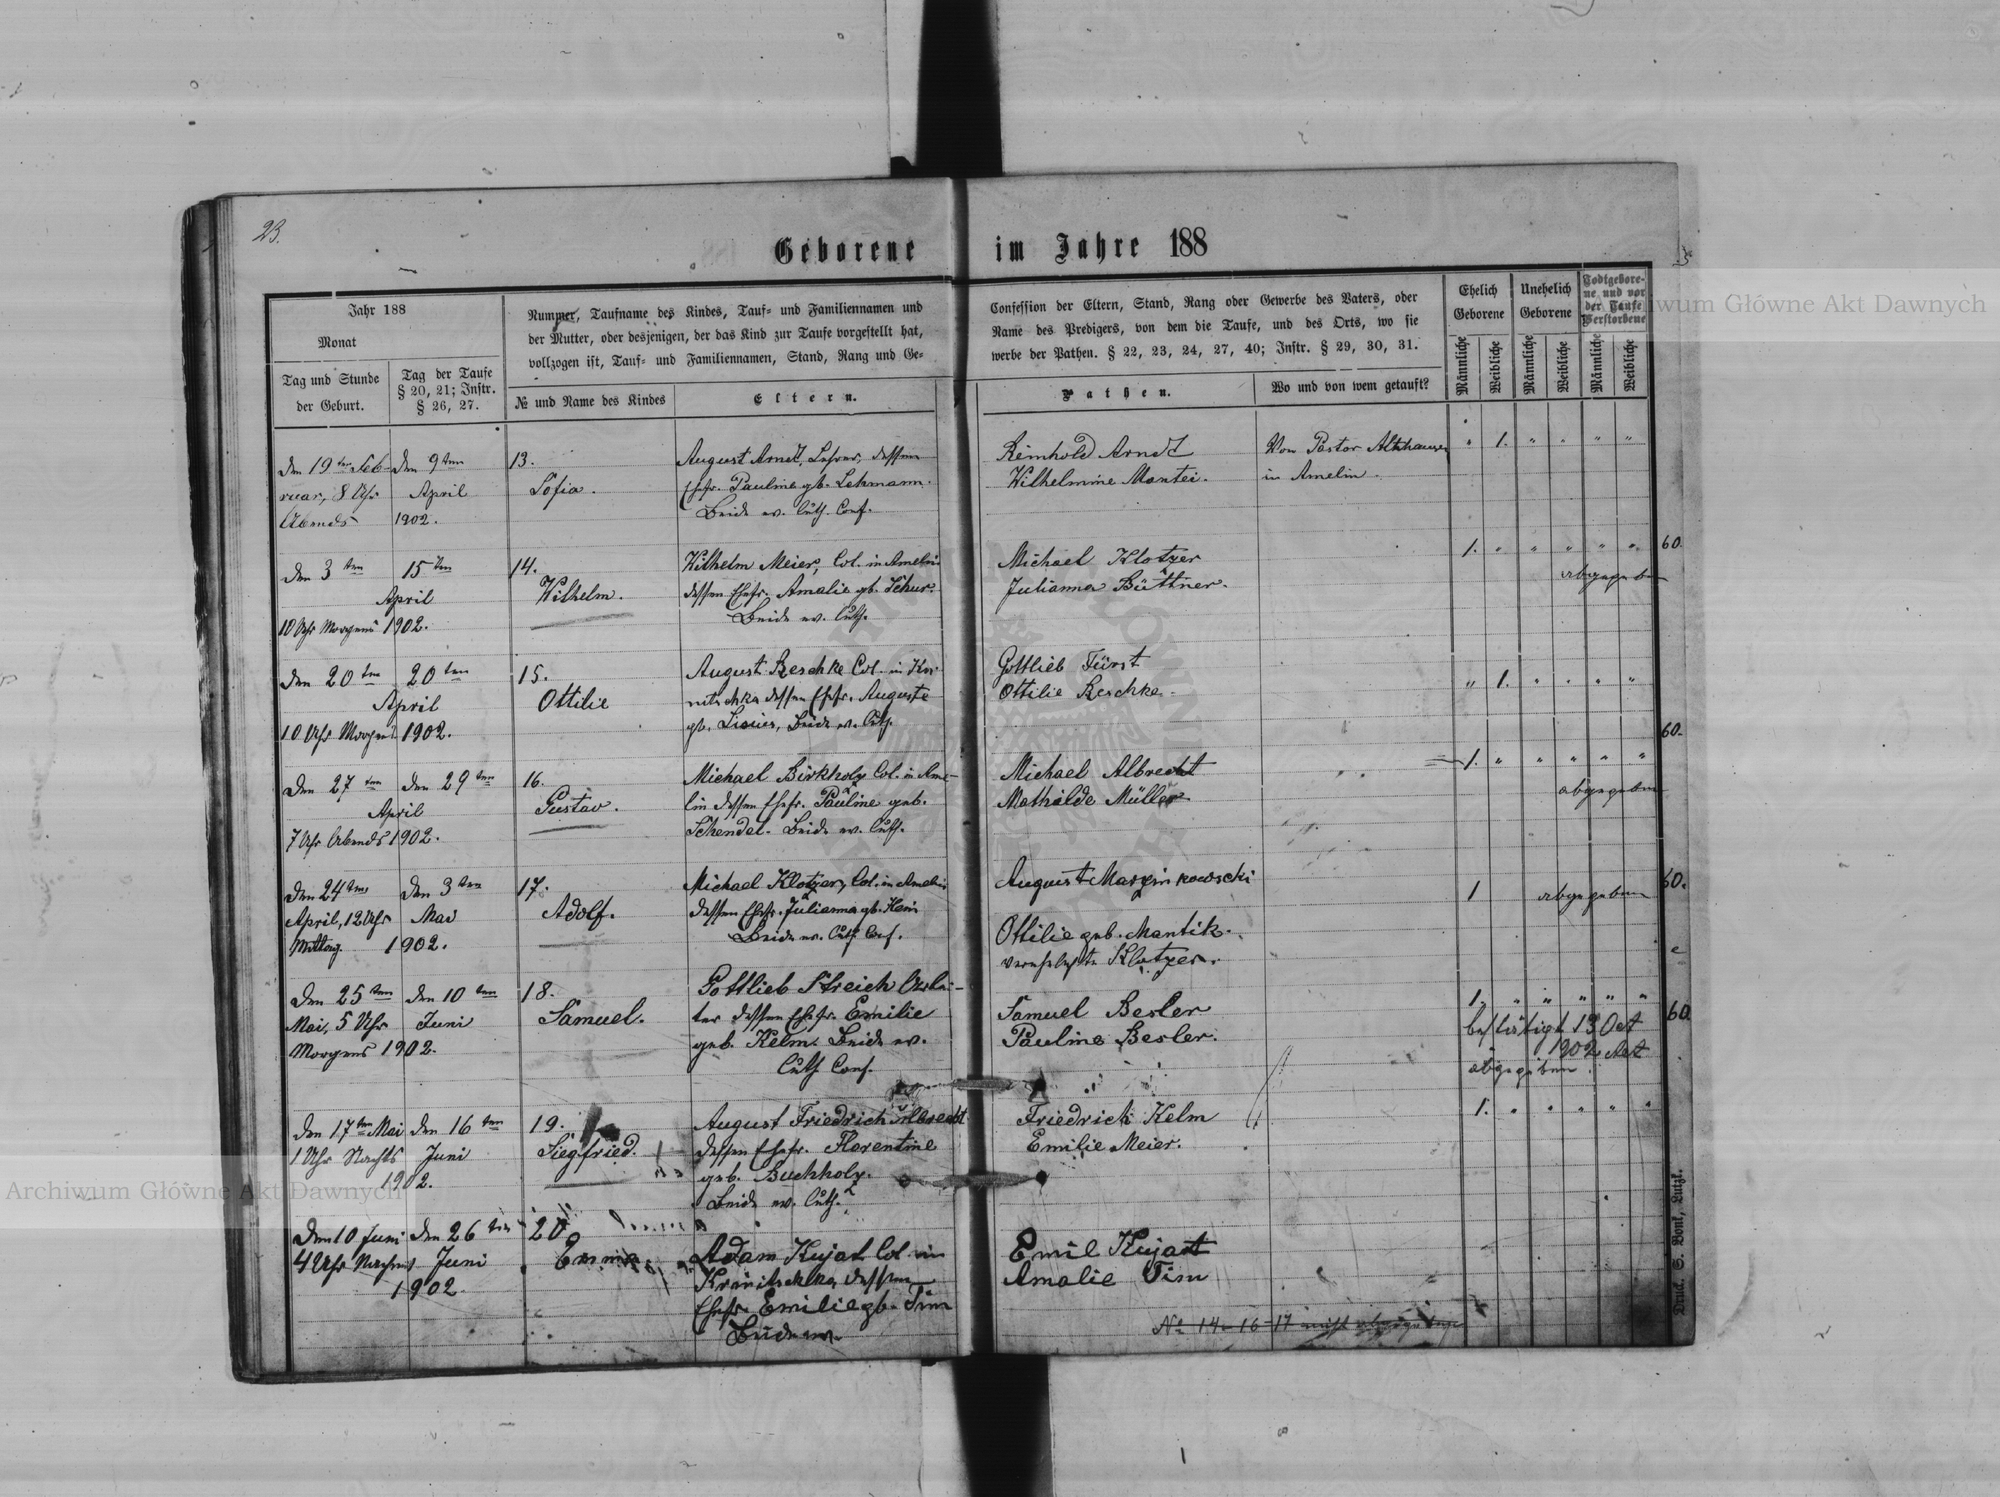 23.
Geborene im Jahre 188
Jahr 188
Monat
Tag und Stunde
der Geburt.
Tag der Taufe
§ 20, 21; Instr.
§ 26, 27.
Nummer, Taufname des Kindes, Tauf- und Familiennamen und
der Mutter, oder desjenigen, der das Kind zur Taufe vorgestellt hat,
vollzogen ist, Tauf- und Familiennamen, Stand, Rang und Ge-
№ und Name des Kindes
Eltern.
Confession der Eltern, Stand, Rang oder Gewerbe des Vaters, oder
Name des Predigers, von dem die Taufe, und des Orts, wo sie
werbe der Pathen. § 22, 23, 24, 27, 40; Instr. § 29, 30, 31.
Pathen.
Wo und von wem getauft?
Ehelich
Geborene
Unehelich
Geborene
Todtgebore-
ne und vor
der Taufe
Verstorbene
Männliche
Weibliche
Männliche
Weibliche
Männliche
Weibliche
den 19ten Feb-
ruar, 8 Uhr
Abends
den 9ten
April
1902.
13.
Sofia.
August Arndt, Lehrer, dessen
Ehefr. Pauline gb. Lehmann.
Beide ev. luth. Conf.
Reinhold Arndt
Wilhelmine Montei.
Von Pastor Althausen
in Amelin.
" 1. " " " "
den 3ten
15ten
April
10 Uhr Morgens 1902.
14.
Wilhelm.
Wilhelm Meier, Col. in Amelin
dessen Ehefr. Amalie gb. Schur.
Beide ev. luth.
Michael Klotzer
Julianna Büttner.
1. " " " " "
60.
abgegeben
den 20ten
20ten
April
10 Uhr Morgens 1902.
15.
Ottilie
August Reschke Col. in Kra-
nitschka dessen Ehefr. Auguste
beide ev. luth.
Gottlieb Fürst
Ottilie Reschke.
" 1. " " " "
60.
den 27ten
den 29ten
April
7 Uhr Abends 1902.
16.
Gustav.
Michael Birkholz Col. in Ame-
lin dessen Ehefr. Pauline geb.
Schendel. Beide ev. luth.
Michael Albrecht
Mathilde Müller
1. " " " " "
abgegeben
den 24ten
April, 12 Uhr
Mittag
den 3ten
Mai
1902.
17.
Adolf.
Michael Klotzer, Col. in Amelin
dessen Ehefr. Julianna gb. Hein
Beide ev. luth Conf.
August Marzinkowski
Ottilie geb. Mantik.
verehelichte Klotzer.
1 abgegeben
60.
den 25ten
Mai, 5 Uhr
Morgens 1902.
den 10ten
Juni
18.
Samuel.
Gottlieb Streich Arbei-
ter dessen Ehefr. Emilie
geb. Kelm. Beide ev.
luth Conf.
Samuel Besler
Pauline Besler.
1. " " " " "
bestätigt 13 Oct
1902 Act
abgegeben.
60.
den 17ten Mai
1 Uhr Nachts
den 16ten
Juni
1902.
19.
Siegfried.
August Friedrich Albrecht
dessen Ehefr. Florentine
geb. Buchholz.
Beide ev. luth.
Friedrich Kelm
Emilie Meier.
1. " " " " "
den 10 Juni
4 Uhr Nachm
den 26ten
Juni
1902.
20.
Emma.
Adam Kujat Col in
Kranitschka dessen
Ehefr. Emilie gb. Tim
Beide ev.
Emil Kujat
Amalie Tim
№ 14-16-17 nicht abgegeben
Druck. S. Bonk, Lutzk.
Archiwum Główne Akt Dawnych
Archiwum Główne Akt Dawnych